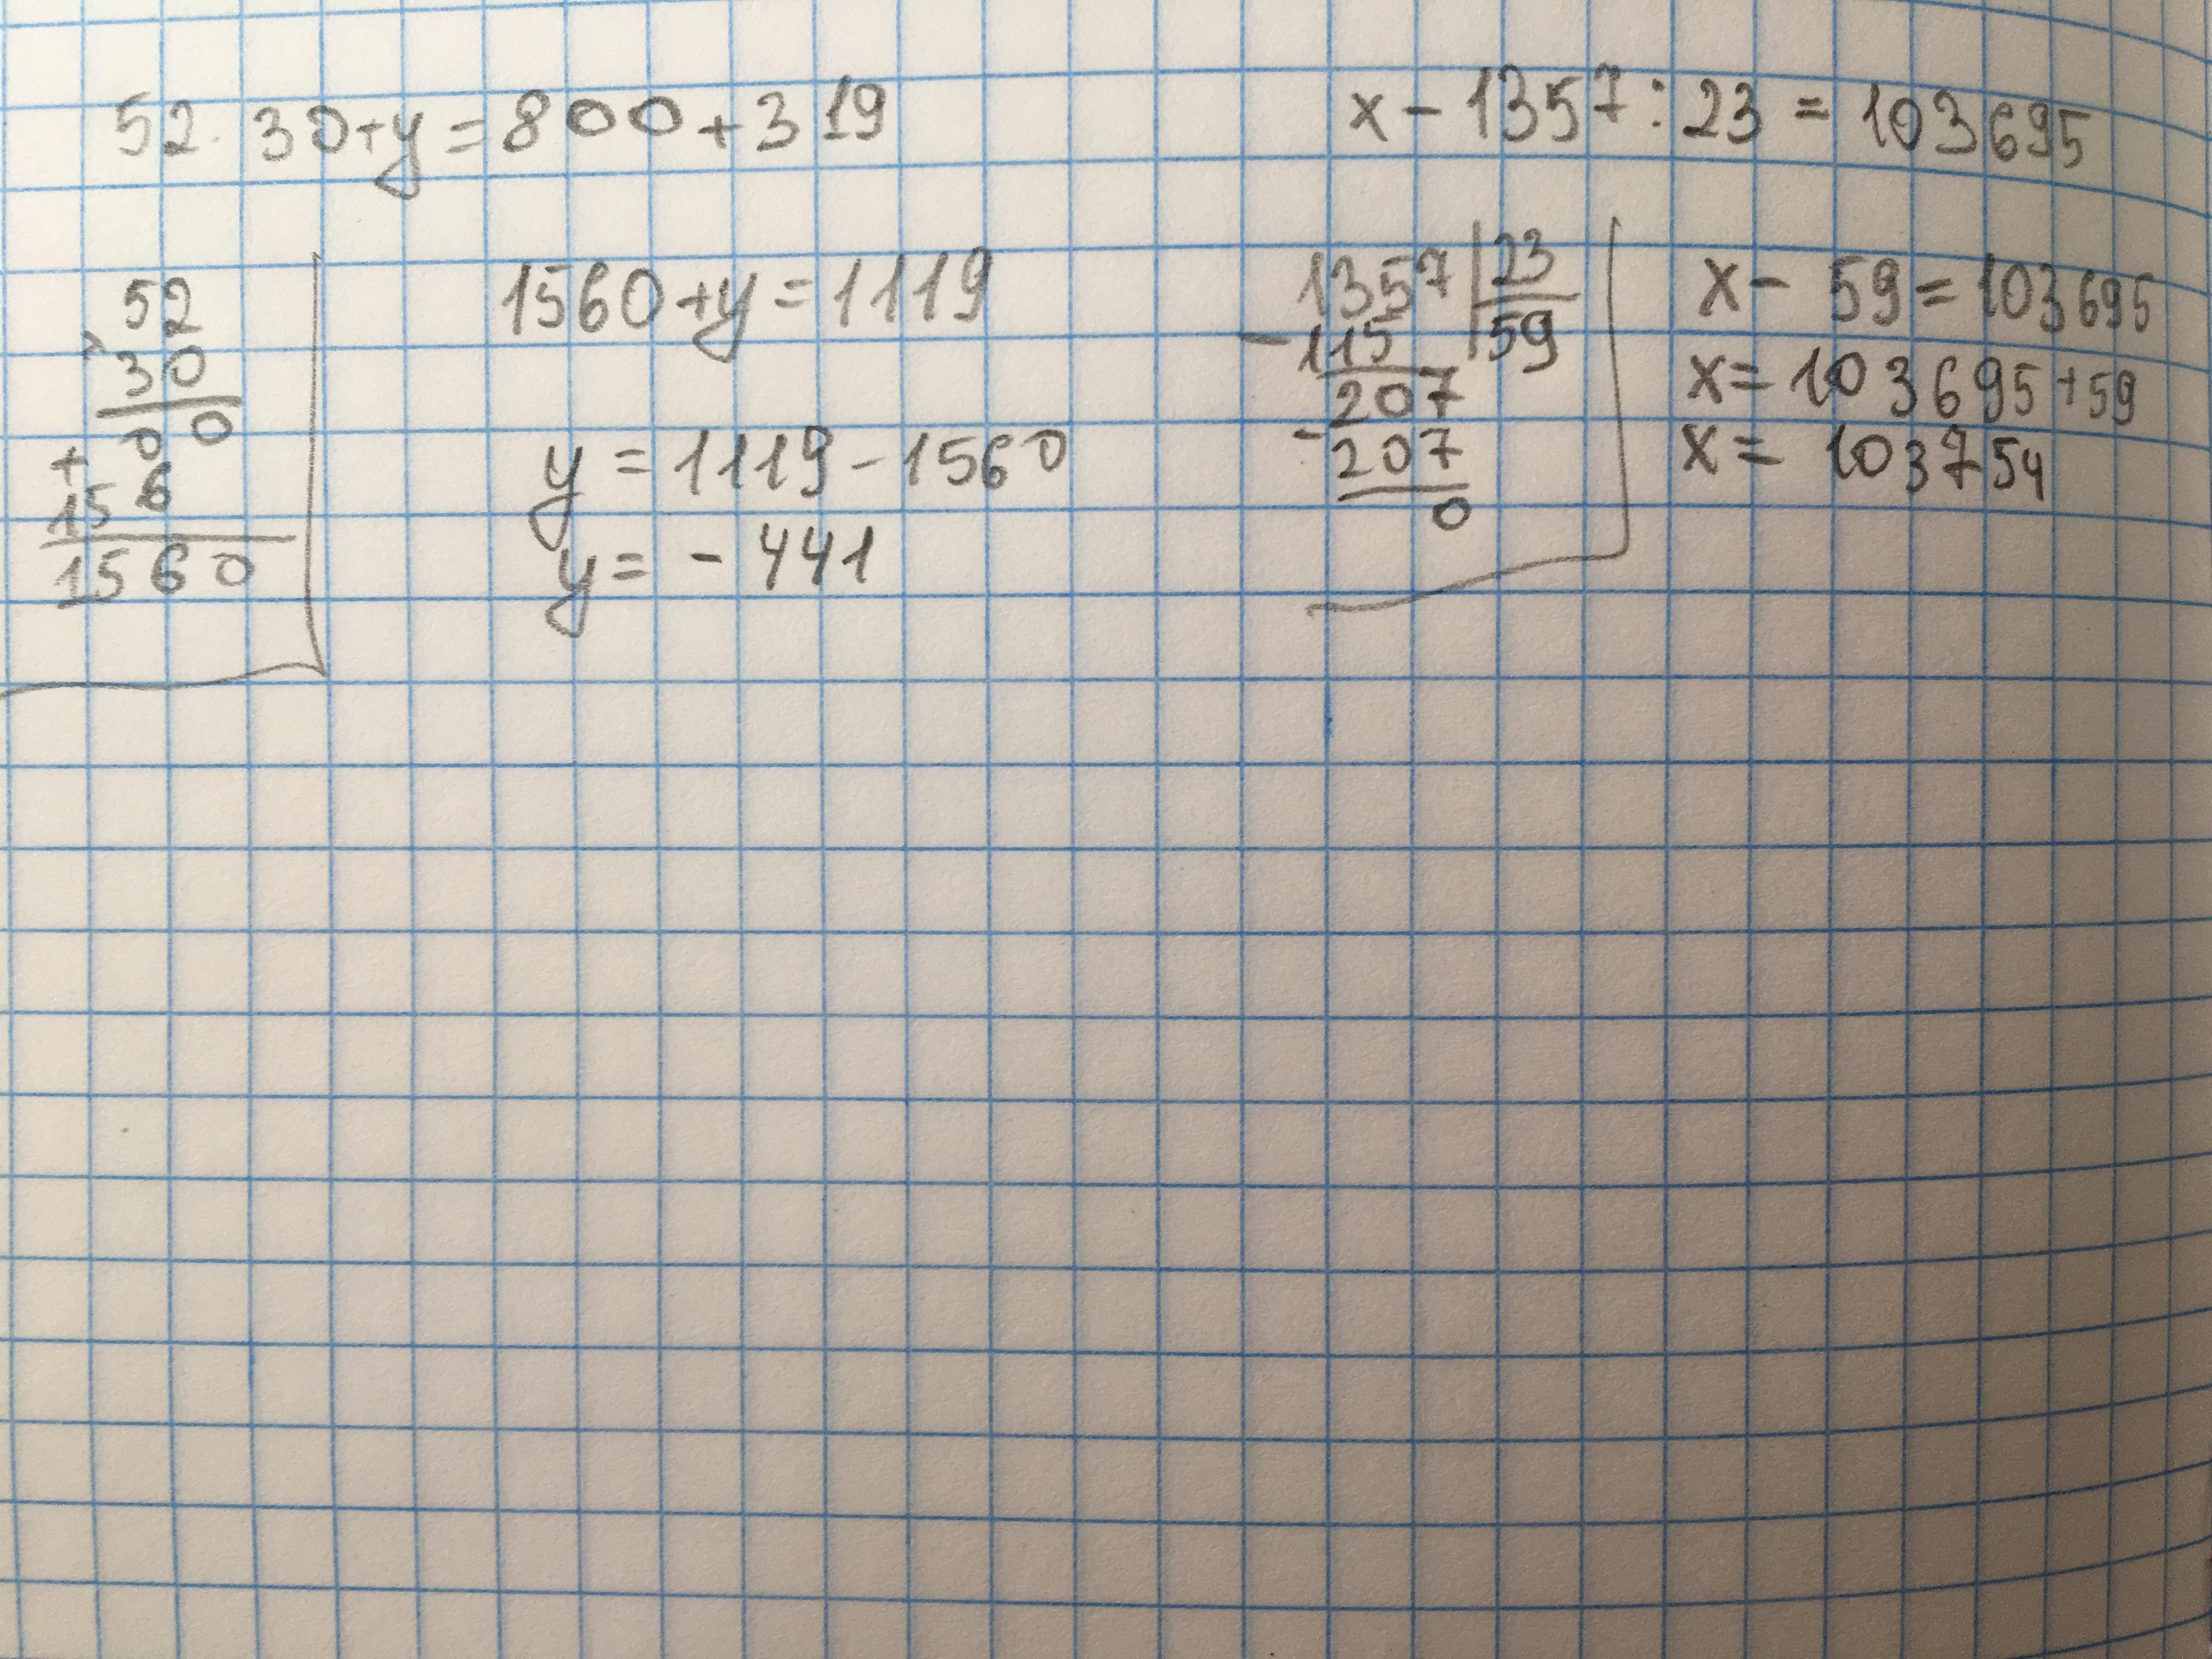 52 · 30+y=800+319
52
×
30
00
+
156
1560
1560+y=1119
y = 1119 - 1560
y = - 441
x - 1357 : 23 = 103695
1357 | 23
- 115 59
207
- 207
0
x - 59 = 103695
x = 103695 + 59
x = 103754